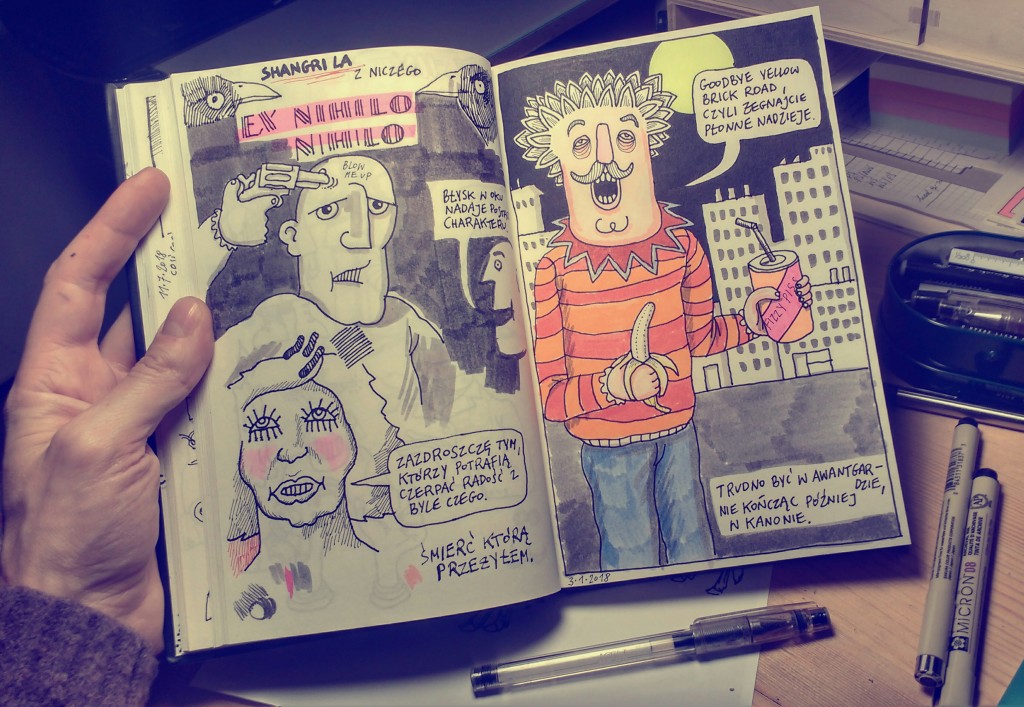 SHANGRI LA
Z NICZEGO
EX NIHILO
NIHILO
BLOW
ME UP
BŁYSK W OKU
NADAJE
CHARAKTERU
ZAZDROSZCZĘ TYM,
KTÓRZY POTRAFIĄ
CZERPAĆ RADOŚĆ Z
BYLE CZEGO.
ŚMIERĆ KTÓRĄ
PRZEŻYŁEM.
GOODBYE YELLOW
BRICK ROAD,
CZYLI ŻEGNAJCIE
PŁONNE NADZIEJE.
FIZZY PISS
TRUDNO BYĆ W AWANTGAR-
DZIE,
NIE KOŃCZĄC PÓŹNIEJ
W KANONIE.
3.1.2018
MICRON 08